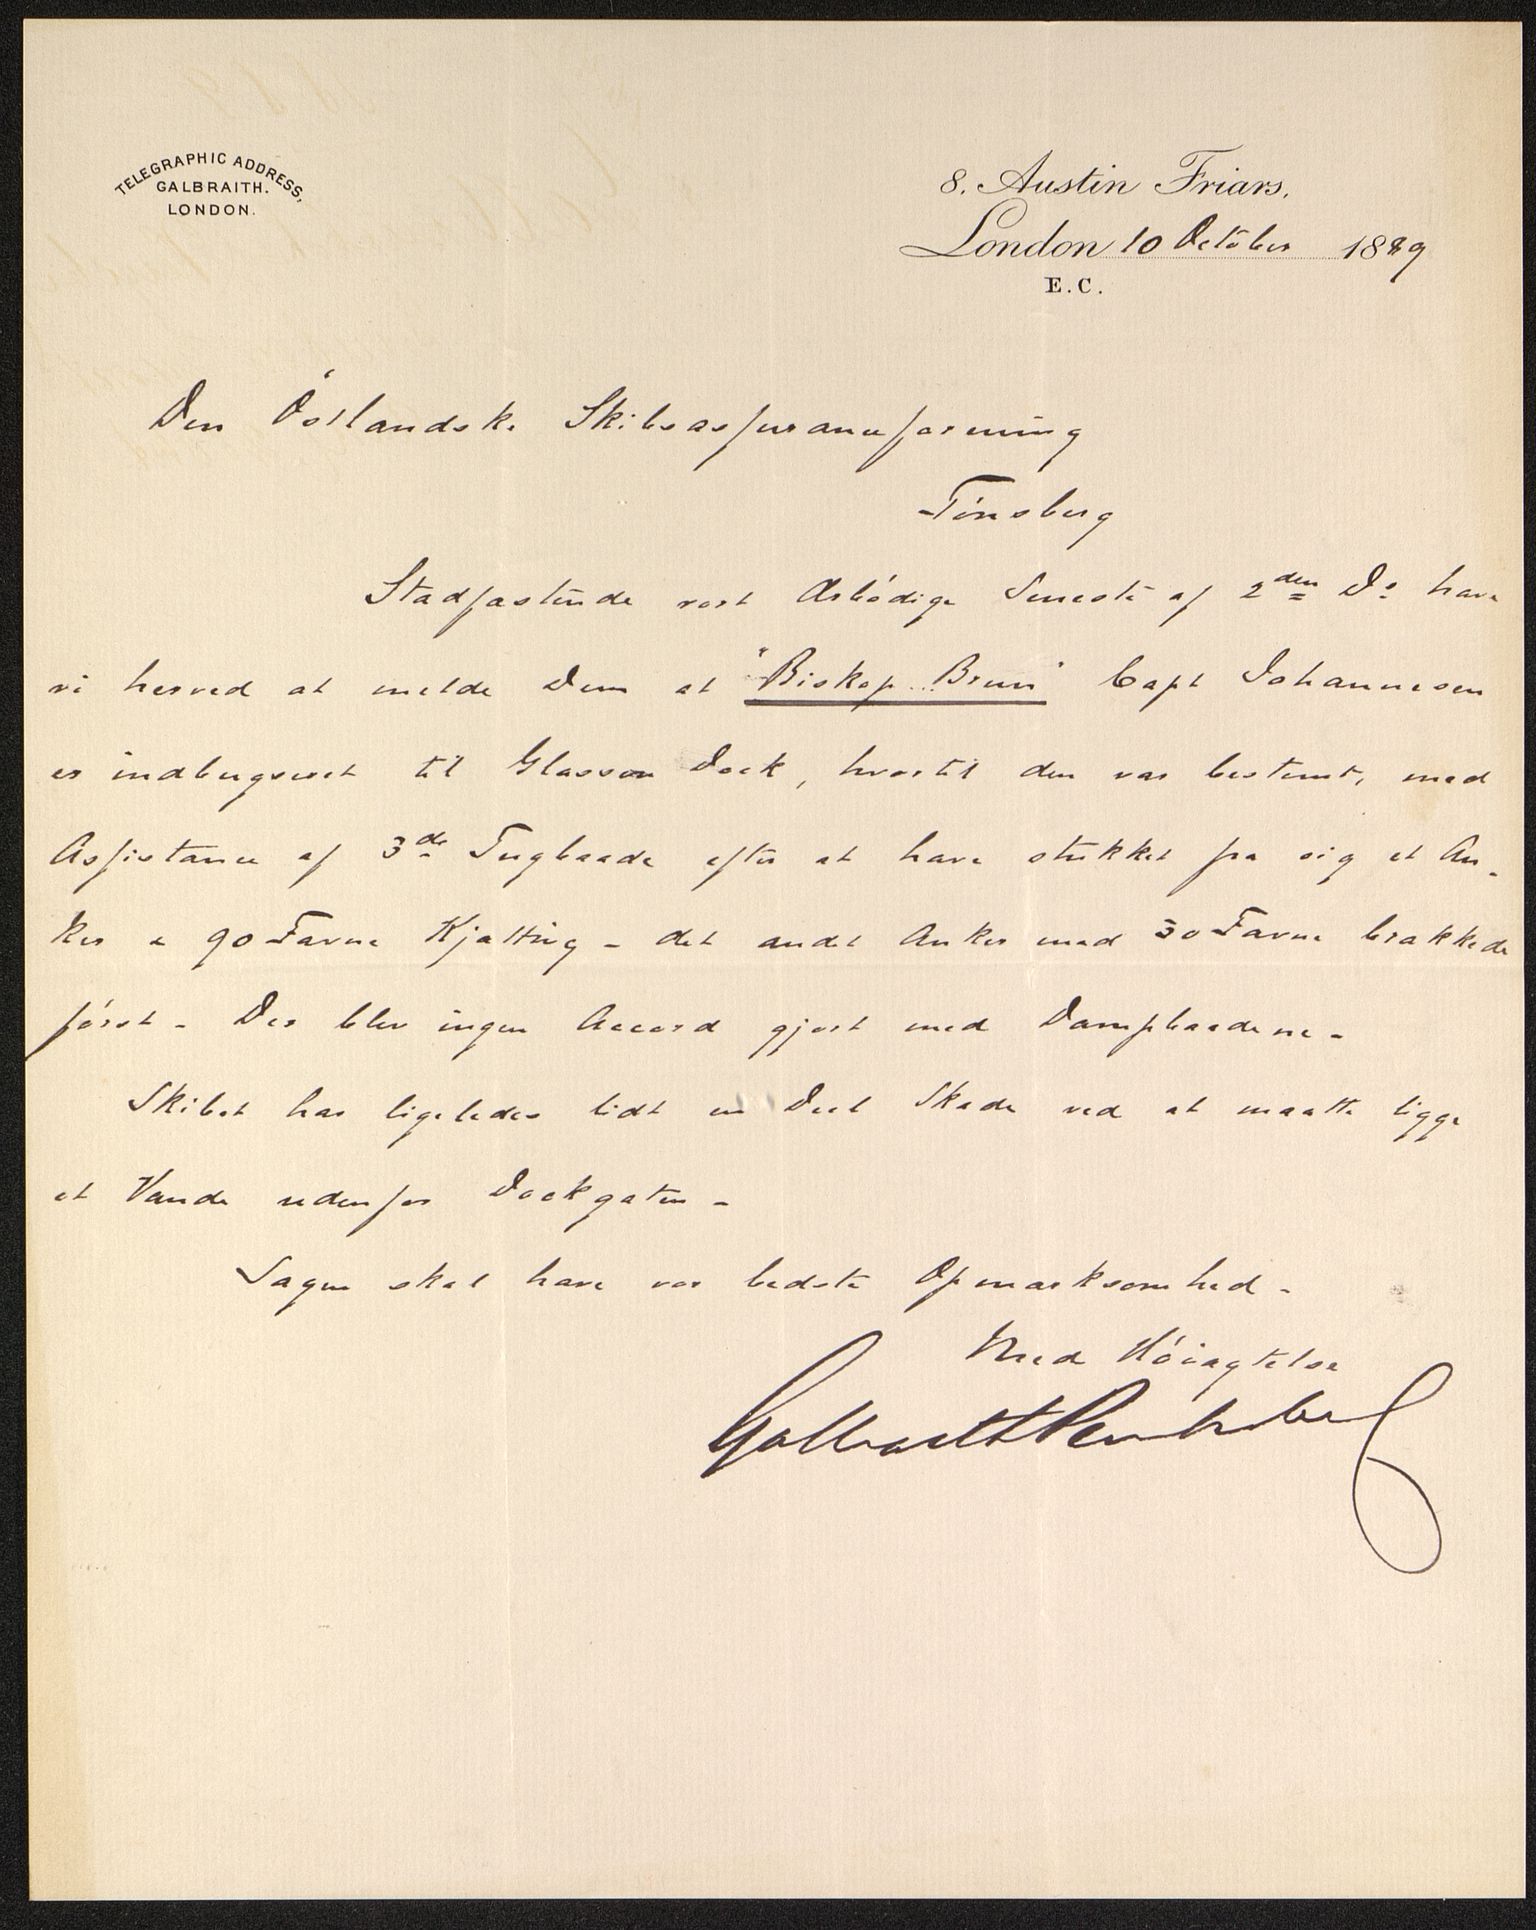 TELEGRAPHIC ADDRESS,
GALBRAITH.
LONDON.
8, Austin Friars,
London 10 October 1889
E.C.
Den Östlandske Skibsassuranceforening
Tönsberg
Stadfæstende vort Ærbödige Seneste af 2den Ds have
vi herved at melde Dem at "Biskop Brun" Capt Johannesen
er indbugseret til Glasson Dock, hvortil den var bestemt, med
Assistance af 3de Tugbaade efter at have stukket fra sig et An-
ker & 90 Favne Kjætting - det andet Anker med 30 Favne brækkede
först - Der blev ingen Accord gjort med Dampbaadene -
Skibet har ligeledes lidt en Deel Skade ved at maatte ligge
et Vande udenfor Dockgaten -
Sagen skal have vor bedste Opmærksomhed -
Med Höiagtelse
Galbraith Pembroke